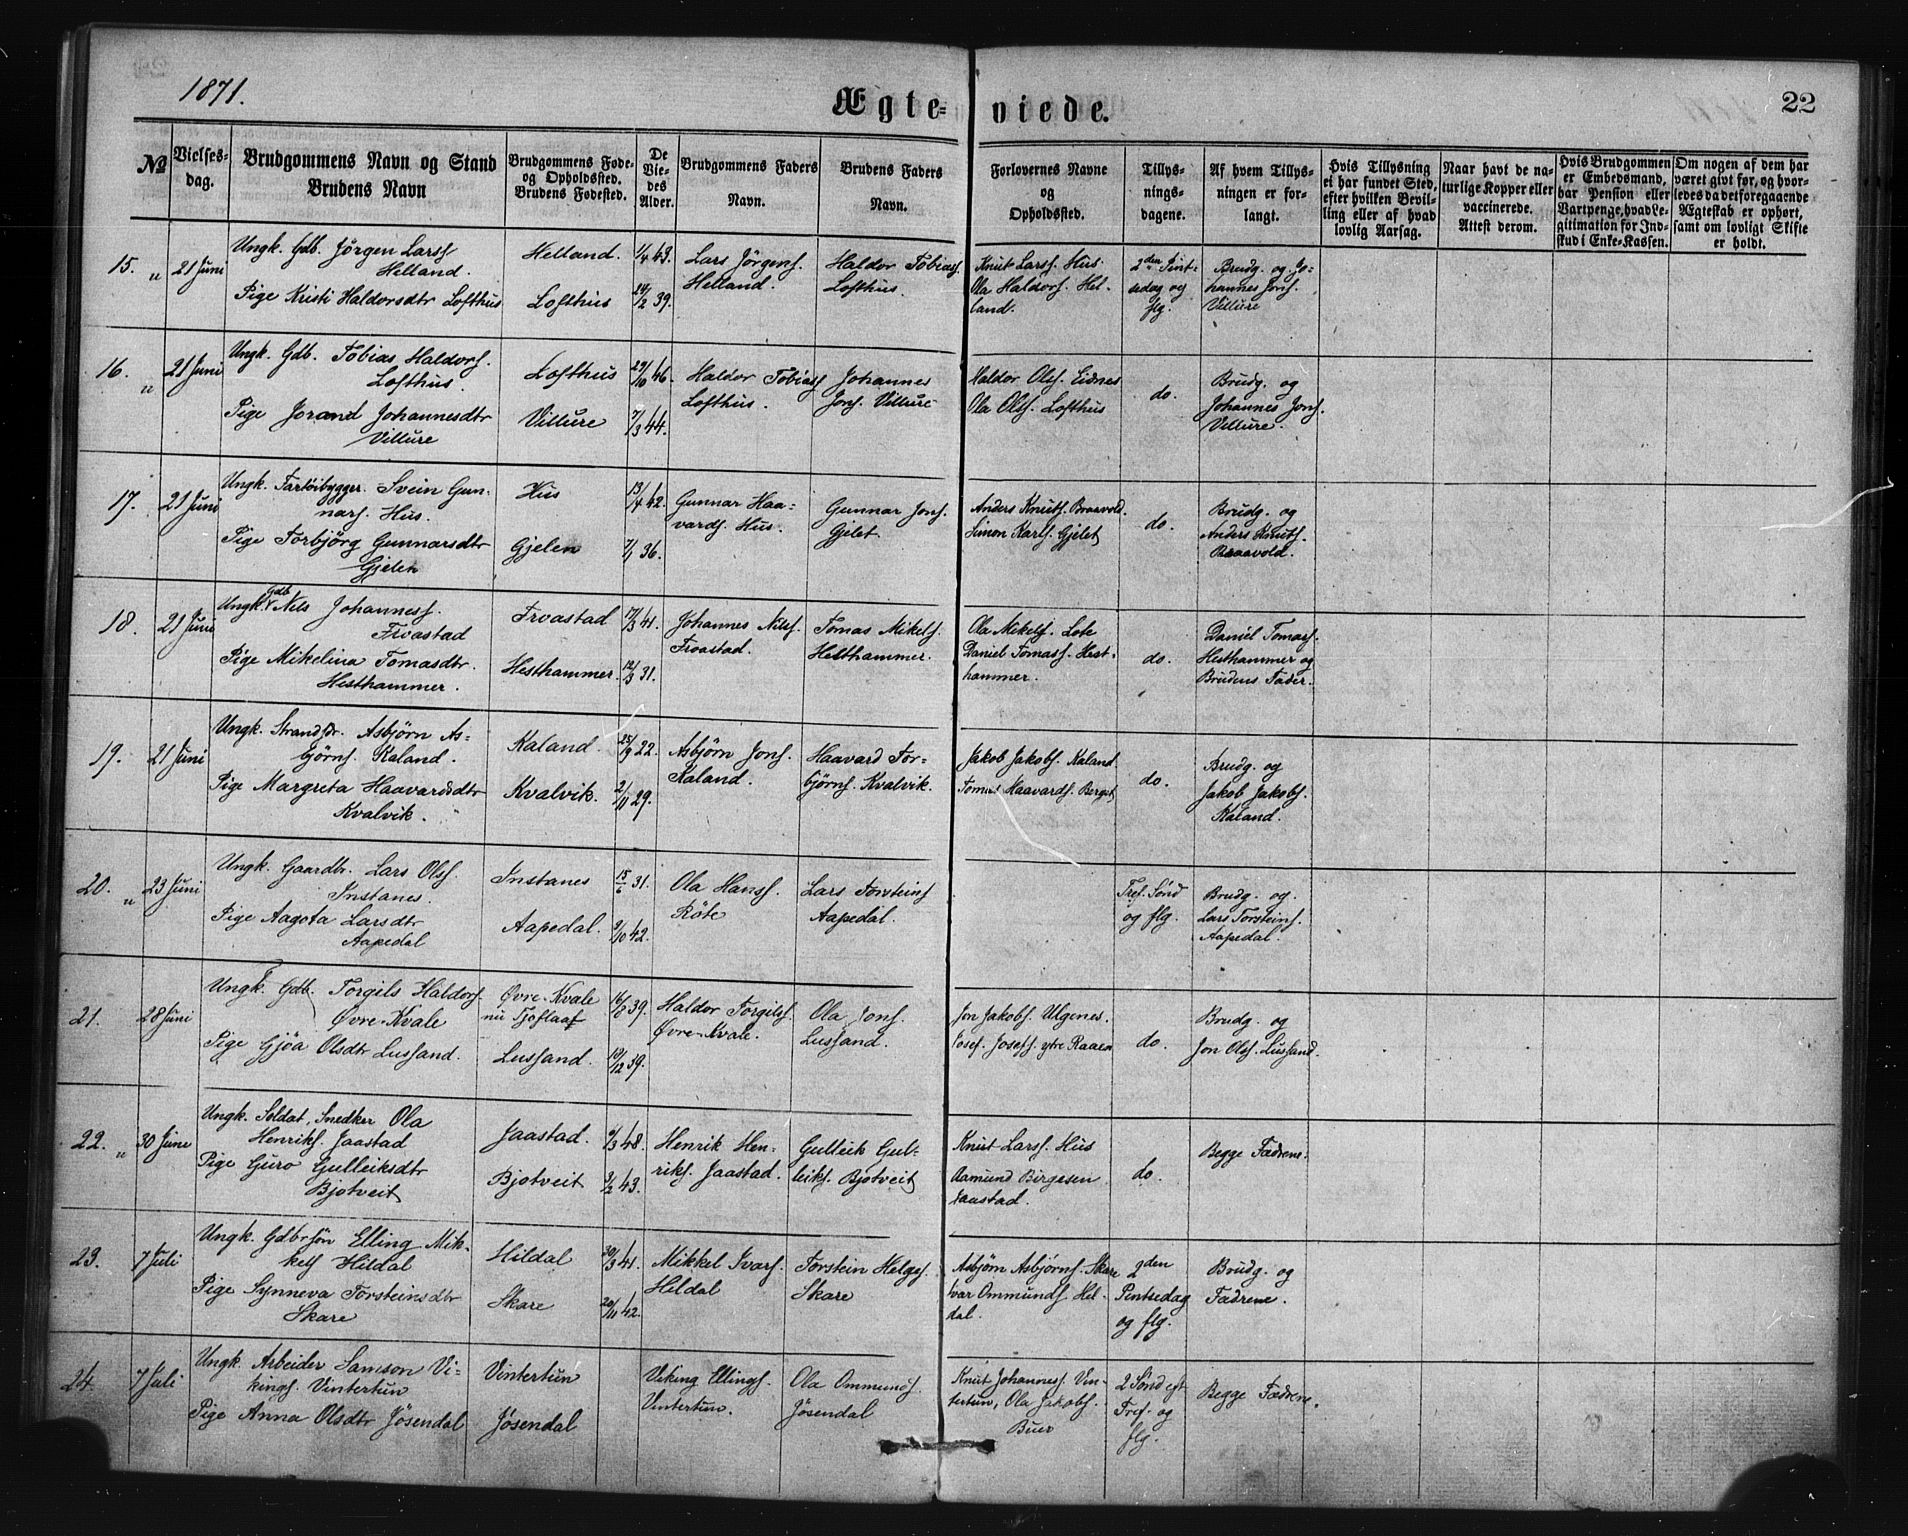 1871.
Ægte-
viede.
22
No
Vielses-
dag.
Brudgommens Navn og Stand
Brudens Navn
Brudgommens Føde-
og Opholdssted.
Brudens Fødested.
De
Vie-
des
Alder.
Brudgommens Faders
Navn.
Brudens Faders
Navn.
Forlovernes Navne
og
Opholdssted.
Tillys-
nings-
dagene.
Af hvem Tillys-
ningen er for-
langt.
Hvis Tillysning
ei har fundet Sted,
efter hvilken Bevil-
ling eller af hvad
lovlig Aarsag.
Naar havt de na-
turlige Kopper eller
vaccinerede.
Attest derom.
Hvis Brudgommen
er Embedsmand,
har Pension eller
Vartpenge, hvad Le-
gitimation for Ind-
skud i Enke-Kassen.
Om nogen af dem har
været givt før, og hvor-
ledes da det foregaaende
Ægteskab er ophørt,
samt om lovligt Skifte
er holdt.
15. " 21 Juni
Ungk. Gdb. Jørgen Larss.
Helland.
Pige Kristi Haldorsdtr Lofthus
Helland.
Lofthus
1/4 43.
24/2 39.
Lars Jörgens.
Helland.
Haldor Tobiass.
Lofthus.
Knut Larss. Hus.
Ola Haldors. Hel-
land.
2den Pint-
sedag og
flg.
Brudg. og Jo-
hannes Jons.
Villure
16. " 21 Juni
Ungk. Gdb. Tobias Haldors.
Lofthus.
Pige Jorand Johannesdtr
Villure
Lofthus
Villure
29/10 46.
7/3 44.
Haldor Tobiass
Lofthus.
Johannes
Jons. Villure
Haldor Ols. Eidnes
Ola Ols. Lofthus
do.
Brudg. og
Johannes Jons.
Villure.
17. 21 Juni
Ungk. Fartöibygger. Svein Gun-
nars. Hus.
Pige Torbjörg Gunnarsdtr
Gjelen
Hus
Gjelen
13/4 42.
7/1 36.
Gunnar Haa-
vards. Hus.
Gunnar Jons.
Gjelet.
Anders Knuts. Braavold.
Simon Karls. Gjelet
do.
Brudg. og
Anders Knuts.
Braavold.
18. 21 Juni
Ungk. Gdb Nils Johanness.
Froastad
Pige Mikelina Tomasdtr.
Hesthammer.
Froastad
Hesthammer.
17/3 41.
12/3 31.
Johannes Nilss.
Froastad.
Tomas Mikels.
Hesthammer.
Ola Mikels. Lote
Daniel Tomass. Hest-
hammer.
do.
Daniel Tomass.
Hesthammer og
Brudens Fader.
19. 21 Juni
Ungk. Strandsdr. Asbjörn As-
björns. Kaland.
Pige Margreta Haavardsdtr
Kvalvik.
Kaland.
Kvalvik.
25/9 22.
2/11 29.
Asbjörn Jons.
Kaland.
Haavard Tor-
björns. Kvalvik.
Jakob Jakobs. Kaland.
Tomas Haavards. Berget
do.
Brudg. og
Jakob Jakobs.
Kaland.
20. " 23 Juni
Ungk. Gaardbr. Lars Ols.
Instanes.
Pige Aagota Larsdtr
Aapedal
Instanes
Aapedal.
15/6 31.
9/10 42.
Ola Hans.
Röte
Lars Torsteins
Aapedal.
Tref. Sönd
og flg.
Brudg. og.
Lars Torsteins.
Aapedal.
21. 28 Juni
Ungk. Gdb. Torgils Haldors.
Övre-Kvale
Pige Gjöa Olsdtr Lussand.
Övre-Kvale
nu Tjoflaat
Lussand.
39.
10/12 39.
Haldor Torgilss.
Övre-Kvale.
Ola Jons.
Lussand.
Jon Jakobs. Ulgenes.
Josef. Josefs. ytre Raaen
do.
Brudg. og
Jon Ols. Lussand.
22. " 30 June
Ungk. Soldat, Snedker Ola
Henriks. Jaastad
Pige Guro Gulleiksdtr
Bjotveit
Jaastad.
Bjotveit
9/3 48.
3/2 43.
Henrik Hen-
riks. Jaastad.
Gulleik Gul-
leiks. Bjotveit
Knut Larss. Hus
Aamund Birgesen
Jaastad.
do.
Begge Fædrene.
23. 7 Juli
Ungk. Gdbrsön Elling Mik-
kels Hildal
Pige Synneva Torsteinsdtr
Skare
Hildal
Skare
30/3 41.
20/11 42.
Mikkel Ivars.
Hildal
Torstein Helges.
Skare
Asbjörn Asbjörns. Skare
Ivar Ommunds Hil-
dal.
2den
Pentsedag
og flg.
Brudg. og
Fædrene.
24. 7 Juli
Ungk. Arbeider Samson Vi-
kings. Vintertun
Pige Anna Olsdtr Jösendal
Vintertun
Jösendal
Viking Ellings.
Vintertun.
Ola Ommunds.
Jösendal
Knut Johanness. Vin-
tertun, Ola Jakobs.
Buer
2 Sönd egt
Tref. og
flg.
Begge Fædrene.